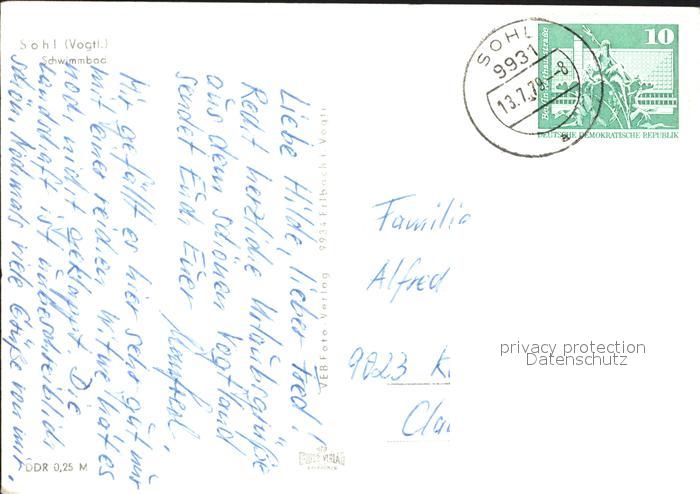 Sohl (Vogtl.)
Schwimmbad
Liebe Hilde, lieber Fred!
Recht herzliche Urlaubsgrüße
aus dem schönen Vogtland
sendet Euch Euer Manfred.
Mir gefällt es hier sehr gut, nur
mit einer reichen Witwe hat es
noch nicht geklappt. Die
Landschaft ist unbeschreiblich
schön. Nochmals viele Grüße von mir.
DDR 0,25 M
VEB Foto-Verlag 9934 Erlbach i. Vogtl.
SOHL
9931
13.7.78.-8
a
10
DEUTSCHE DEMOKRATISCHE REPUBLIK
Familie
Alfred
9023 K.
Cla
privacy protection
Datenschutz